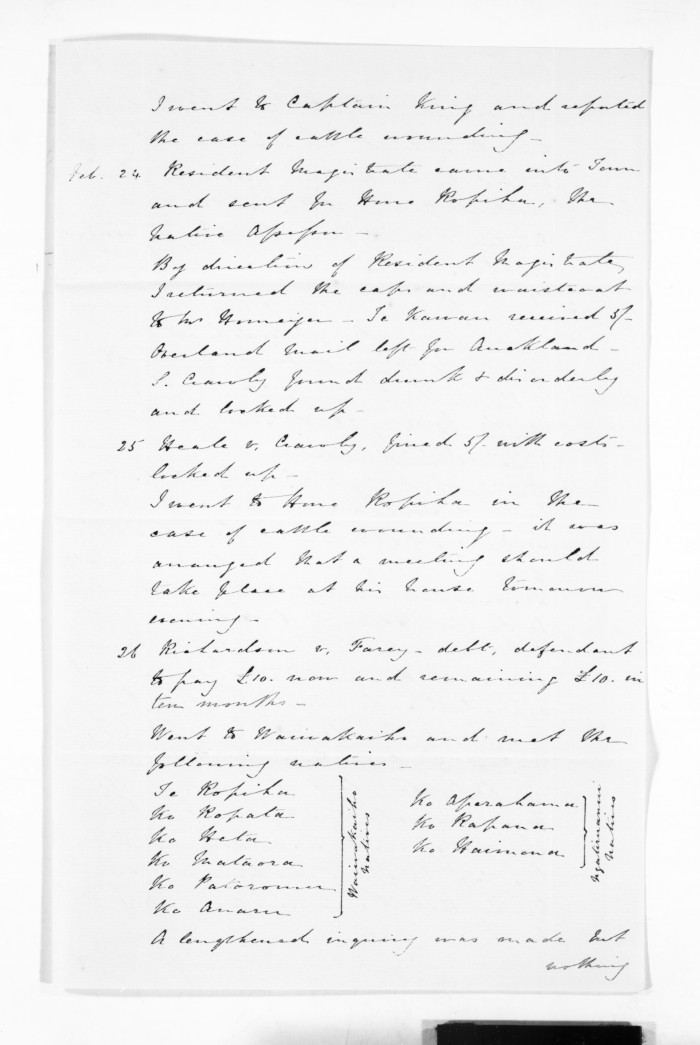 I went to Captain King and reported
the case of cattle wounding –
Feb. 24 Resident Magistrate came into Town
and sent for Hone Ropiha, the
Native Assessor –
By direction of Resident Magistrate,
I returned the caps and waistcoat
to Mr – Te Kawau received 5/-
Overland Mail left for Auckland –
S. Crawly found drunk & disorderly
and locked up –
25 Heale v. Crawly, fined 5/- with costs –
locked up –
I went to Hone Ropiha in the
case of cattle wounding – it was
arranged that a meeting should
take place at his house tomorrow
evening –
26 Richardson v. Farey – debt, defendant
to pay £10. now and remaining £10. in
two months –
Went to Waiwakaiho and met the
following natives –
Te Ropiha
Ko Ropata
Ko Heta
Ko Mataora
Ko Pataromu
Ko Anaru
Waiwakaiho
natives
Ko Aperahama
Ko Rapana
Ko Haimona
natives
A lengthened inquiry was made but
nothing